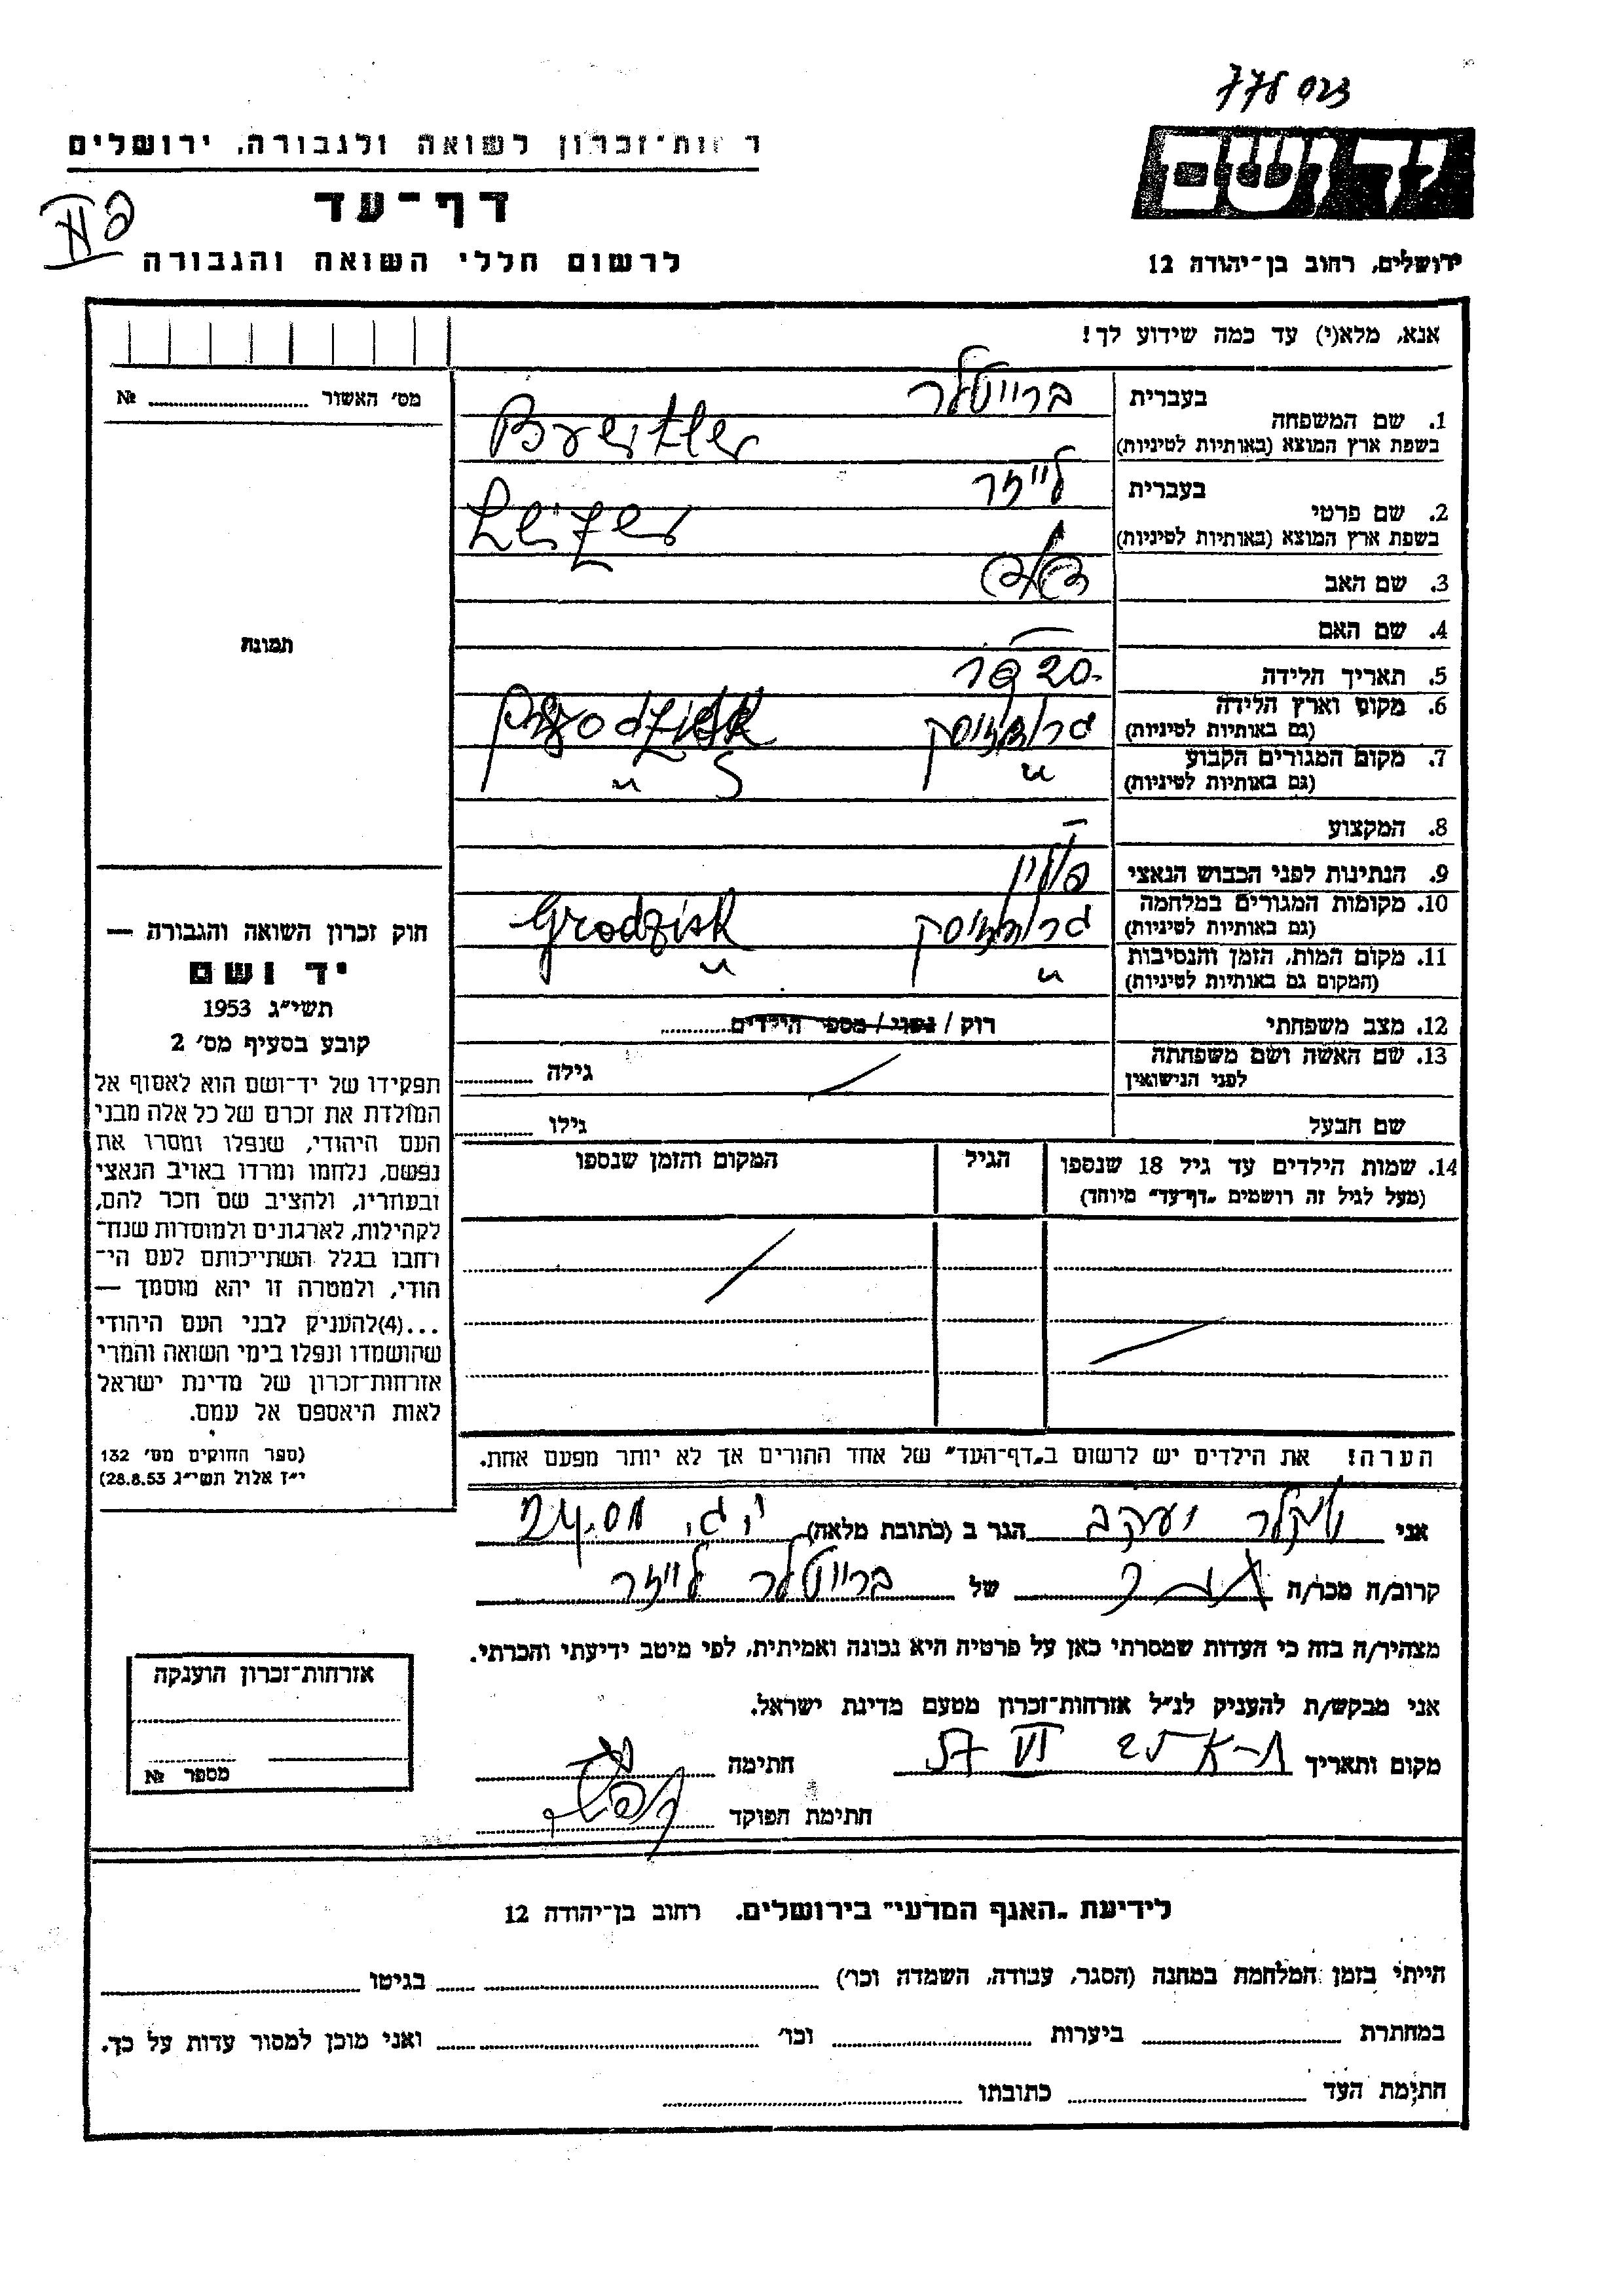 רשות-זכרון לשואה ולגבורה, ירושלים
דף-עד
לרשום חללי השואה והגבורה
יד ושם
ירושלים, רחוב בן-יהודה 12
אנא, מלא(י) עד כמה שידוע לך!
מס׳ האשור № ........
1. שם המשפחה
בעברית ברייטלר
בשפת ארץ המוצא (באותיות לטיניות) Breitler
2. שם פרטי
בעברית לייזר
בשפת ארץ המוצא (באותיות לטיניות) Leizer
3. שם האב
4. שם האם —
5. תאריך הלידה 1920
6. מקום וארץ הלידה
(גם באותיות לטיניות) גרודזיסק
7. מקום המגורים הקבוע
(גם באותיות לטיניות) " "
8. המקצוע —
9. הנתינות לפני הכבוש הנאצי פולין
10. מקומות המגורים במלחמה
(גם באותיות לטיניות) גרודזיסק Grodzisk
11. מקום המות, הזמן והנסיבות
(המקום גם באותיות לטיניות) " "
12. מצב משפחתי רוק / נשוי / מספר הילדים........
13. שם האשה ושם משפחתה
לפני הנישואין
גילה ........
שם הבעל גילו ........
14. שמות הילדים עד גיל 18 שנספו
(מעל לגיל זה רושמים „דף-עד” מיוחד)
הגיל
המקום והזמן שנספו
הערה! את הילדים יש לרשום ב„דף-העד” של אחד ההורים אך לא יותר מפעם אחת.
תמונה
חוק זכרון השואה והגבורה —
יד ושם
תשי״ג 1953
קובע בסעיף מס׳ 2
תפקידו של יד-ושם הוא לאסוף אל
המולדת את זכרם של כל אלה מבני
העם היהודי, שנפלו ומסרו את
נפשם, נלחמו ומרדו באויב הנאצי
ובעוזריו, ולהציב שם וזכר להם,
לקהילות, לארגונים ולמוסדות שנח-
רחבו בגלל השתייכותם לעם הי-
הודי, ולמטרה זו יהא מוסמך —
...(4)להעניק לבני העם היהודי
שהושמדו ונפלו בימי השואה והמרי
אזרחות-זכרון של מדינת ישראל
לאות היאספם אל עמם.
(ספר החוקים מס׳ 132
י״ז אלול תשי״ג 28.8.53)
אני יעקב הגר ב (כתובת מלאה)
קרוב/ה מכר/ה של ברייטלר לייזר
מצהיר/ה בזה כי העדות שמסרתי כאן על פרטיה היא נכונה ואמיתית, לפי מיטב ידיעתי והכרתי.
אני מבקש/ת להעניק לנ״ל אזרחות-זכרון מטעם מדינת ישראל.
מקום ותאריך VI 57 חתימה
חתימת הפוקד
אזרחות-זכרון הוענקה
מספר №
לידיעת „האגף המדעי” בירושלים. רחוב בן-יהודה 12
הייתי בזמן המלחמה במחנה (הסגר, עבודה, השמדה וכו׳) ........ בגיטו ........
במחתרת ........ ביערות ........ וכו׳ ........ ואני מוכן למסור עדות על כך.
חתימת העד ........ כתובתו ........